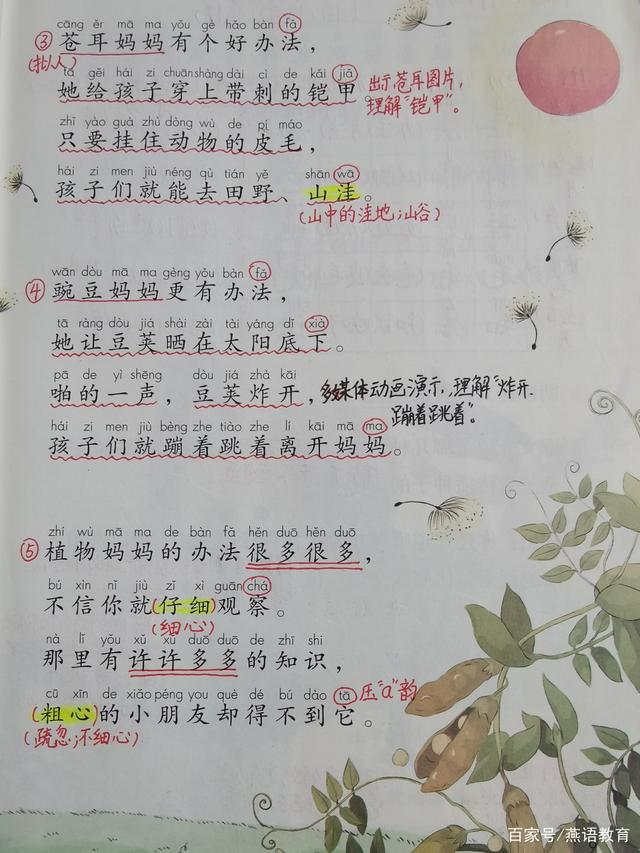 cāng ěr mā ma yǒu gè hǎo bàn fǎ
③苍耳妈妈有个好办法，
(拟人)
tā gěi hái zi chuān shàng dài cì de kǎi jiǎ
她给孩子穿上带刺的铠甲。
出示苍耳图片，
理解“铠甲”。
zhǐ yào guà zhù dòng wù de pí máo
只要挂住动物的皮毛，
hái zi men jiù néng qù tián yě shān wā
孩子们就能去田野、山洼。
(山中的洼地;山谷)
wān dòu mā ma gèng yǒu bàn fǎ
④豌豆妈妈更有办法，
tā ràng dòu jiá shài zài tài yáng dǐ xià
她让豆荚晒在太阳底下。
pā de yì shēng dòu jiá zhà kāi
啪的一声，豆荚炸开，
多媒体动画演示,理解“炸开
蹦着跳着”。
hái zi men jiù bèng zhe tiào zhe lí kāi mā ma
孩子们就蹦着跳着离开妈妈。
zhí wù mā ma de bàn fǎ hěn duō hěn duō
⑤植物妈妈的办法很多很多，
bú xìn nǐ jiù zǐ xì guān chá
不信你就(仔细)观察。
(细心)
nà lǐ yǒu xǔ xǔ duō duō de zhī shi
那里有许许多多的知识，
cū xīn de xiǎo péng yǒu què dé bú dào tā
(粗心)的小朋友却得不到它。
压“a”韵
(疏忽;不细心)
百家号/燕语教育